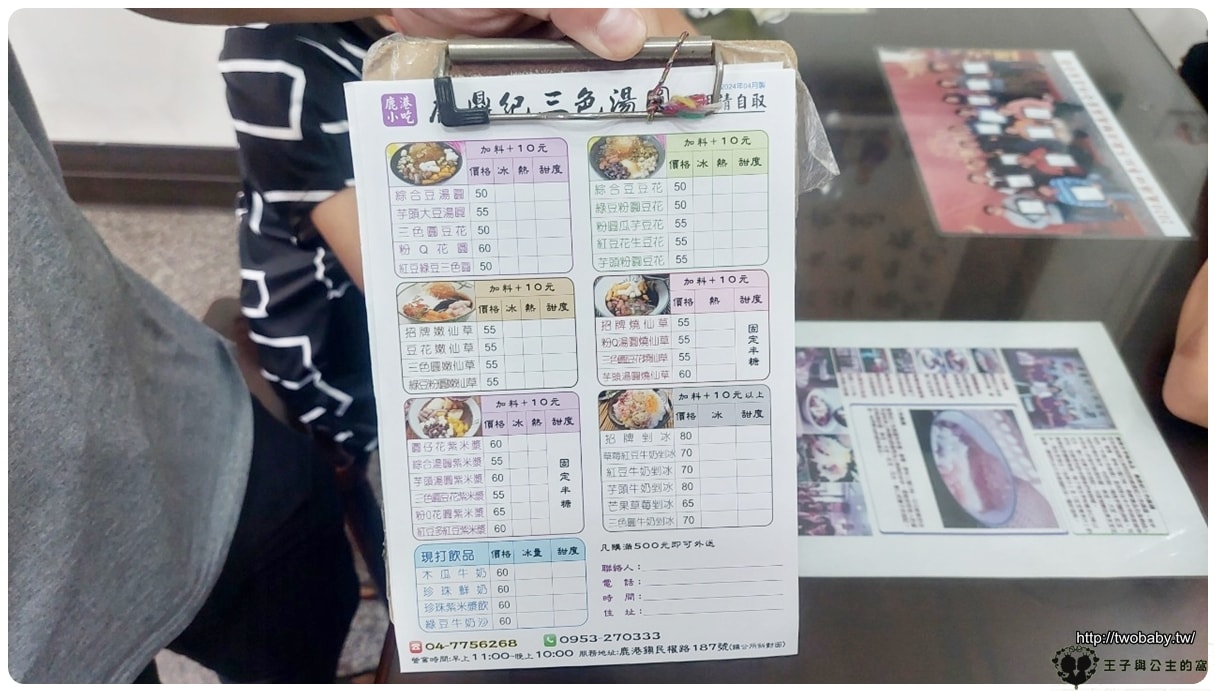 2024年04月製
鹿港
小吃
鼎紀三色湯圓
請自取
加料+10元
價格 冰 熱 甜度
綜合豆湯圓 50
芋頭大豆湯圓 55
三色圓豆花 50
粉Q花圓 60
紅豆綠豆三色圓 50
加料+10元
價格 冰 熱 甜度
綜合豆豆花 50
綠豆粉圓豆花 50
粉圓瓜芋豆花 55
紅豆花生豆花 55
芋頭粉圓豆花 55
加料+10元
價格 冰 熱 甜度
招牌嫩仙草 55
豆花嫩仙草 55
三色圓嫩仙草 55
綠豆粉圓嫩仙草 55
加料+10元
價格 熱 甜度
招牌燒仙草 55
粉Q湯圓燒仙草 55
三色圓豆花燒仙草 55
芋頭湯圓燒仙草 60
固定半糖
加料+10元
價格 冰 熱 甜度
圓仔花紫米漿 60
綜合湯圓紫米漿 55
芋頭湯圓紫米漿 60
三色圓豆花紫米漿 55
粉Q花圓紫米漿 65
紅豆多紅豆紫米漿 60
固定半糖
加料+10元以上
價格 冰 甜度
招牌剉冰 80
草莓紅豆牛奶剉冰 70
紅豆牛奶剉冰 70
芋頭牛奶剉冰 80
芒果草莓剉冰 65
三色圓牛奶剉冰 70
現打飲品 價格 冰量 甜度
木瓜牛奶 60
珍珠鮮奶 60
珍珠紫米漿飲 60
綠豆牛奶沙 60
凡購滿500元即可外送
聯絡人:
電話:
時間:
住址:
04-7756268 0953-270333
營業時間:早上11:00-晚上10:00 服務地址:鹿港鎮民權路187號(鎮公所斜對面)
http://twobaby.tw/
王子與公主的窩